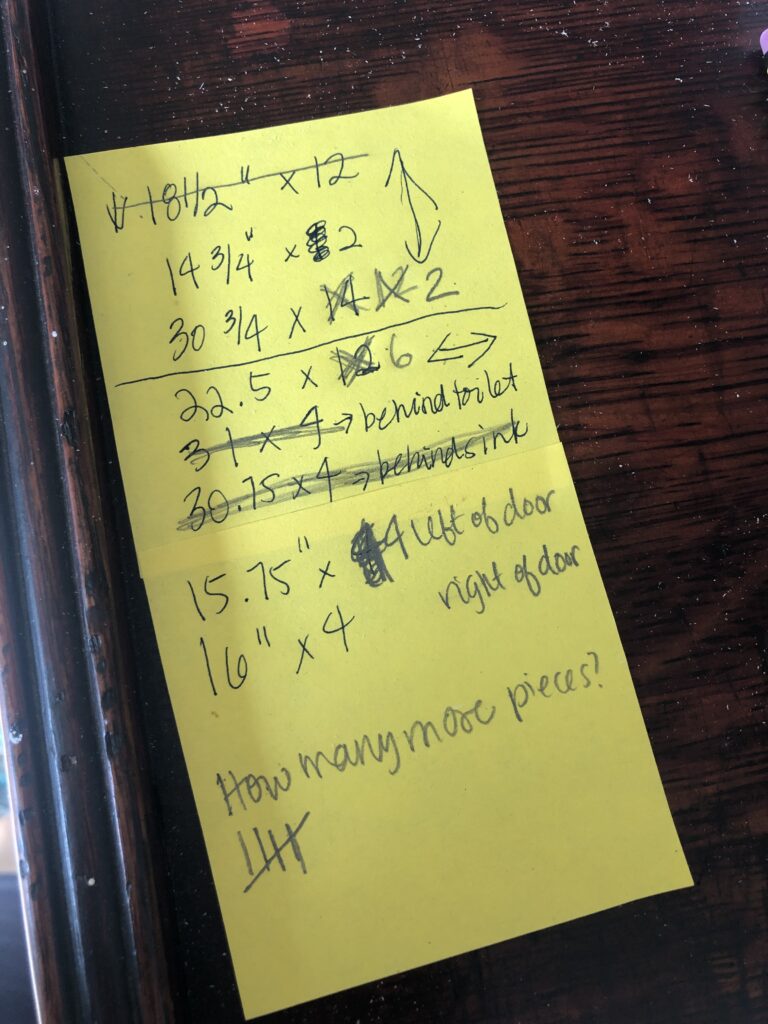 18 1/2" x 12
14 3/4" x 2
30 3/4 x 14 12 2
22.5 x 12 6
31 x 4 → behind toilet
30.75 x 4 → behind sink
15.75" x 4 left of door
16" x 4 right of door
How many more pieces?